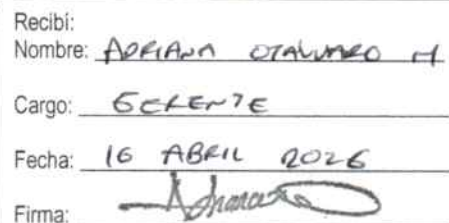 Recibí:
Nombre: ADRIANA OTALVARO M
Cargo: GERENTE
Fecha: 16 ABRIL 2026
Firma: Adriana